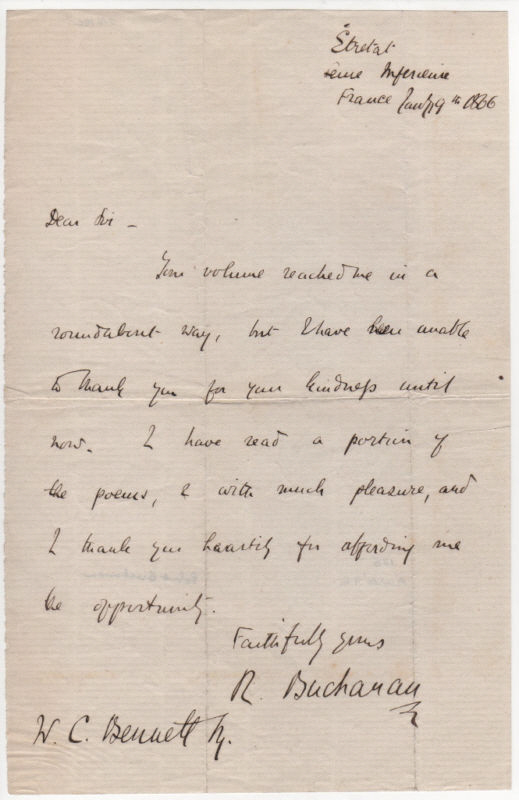 Étretat
Seine Inferieure
France Jany 19th 1866
Dear Sir –
Your volume reached me in a
roundabout way, but I have been unable
to thank you for your kindness until
now. I have read a portion of
the poems, & with much pleasure, and
I thank you heartily for affording me
the opportunity.
Faithfully yours
R. Buchanan
W. C. Bennett